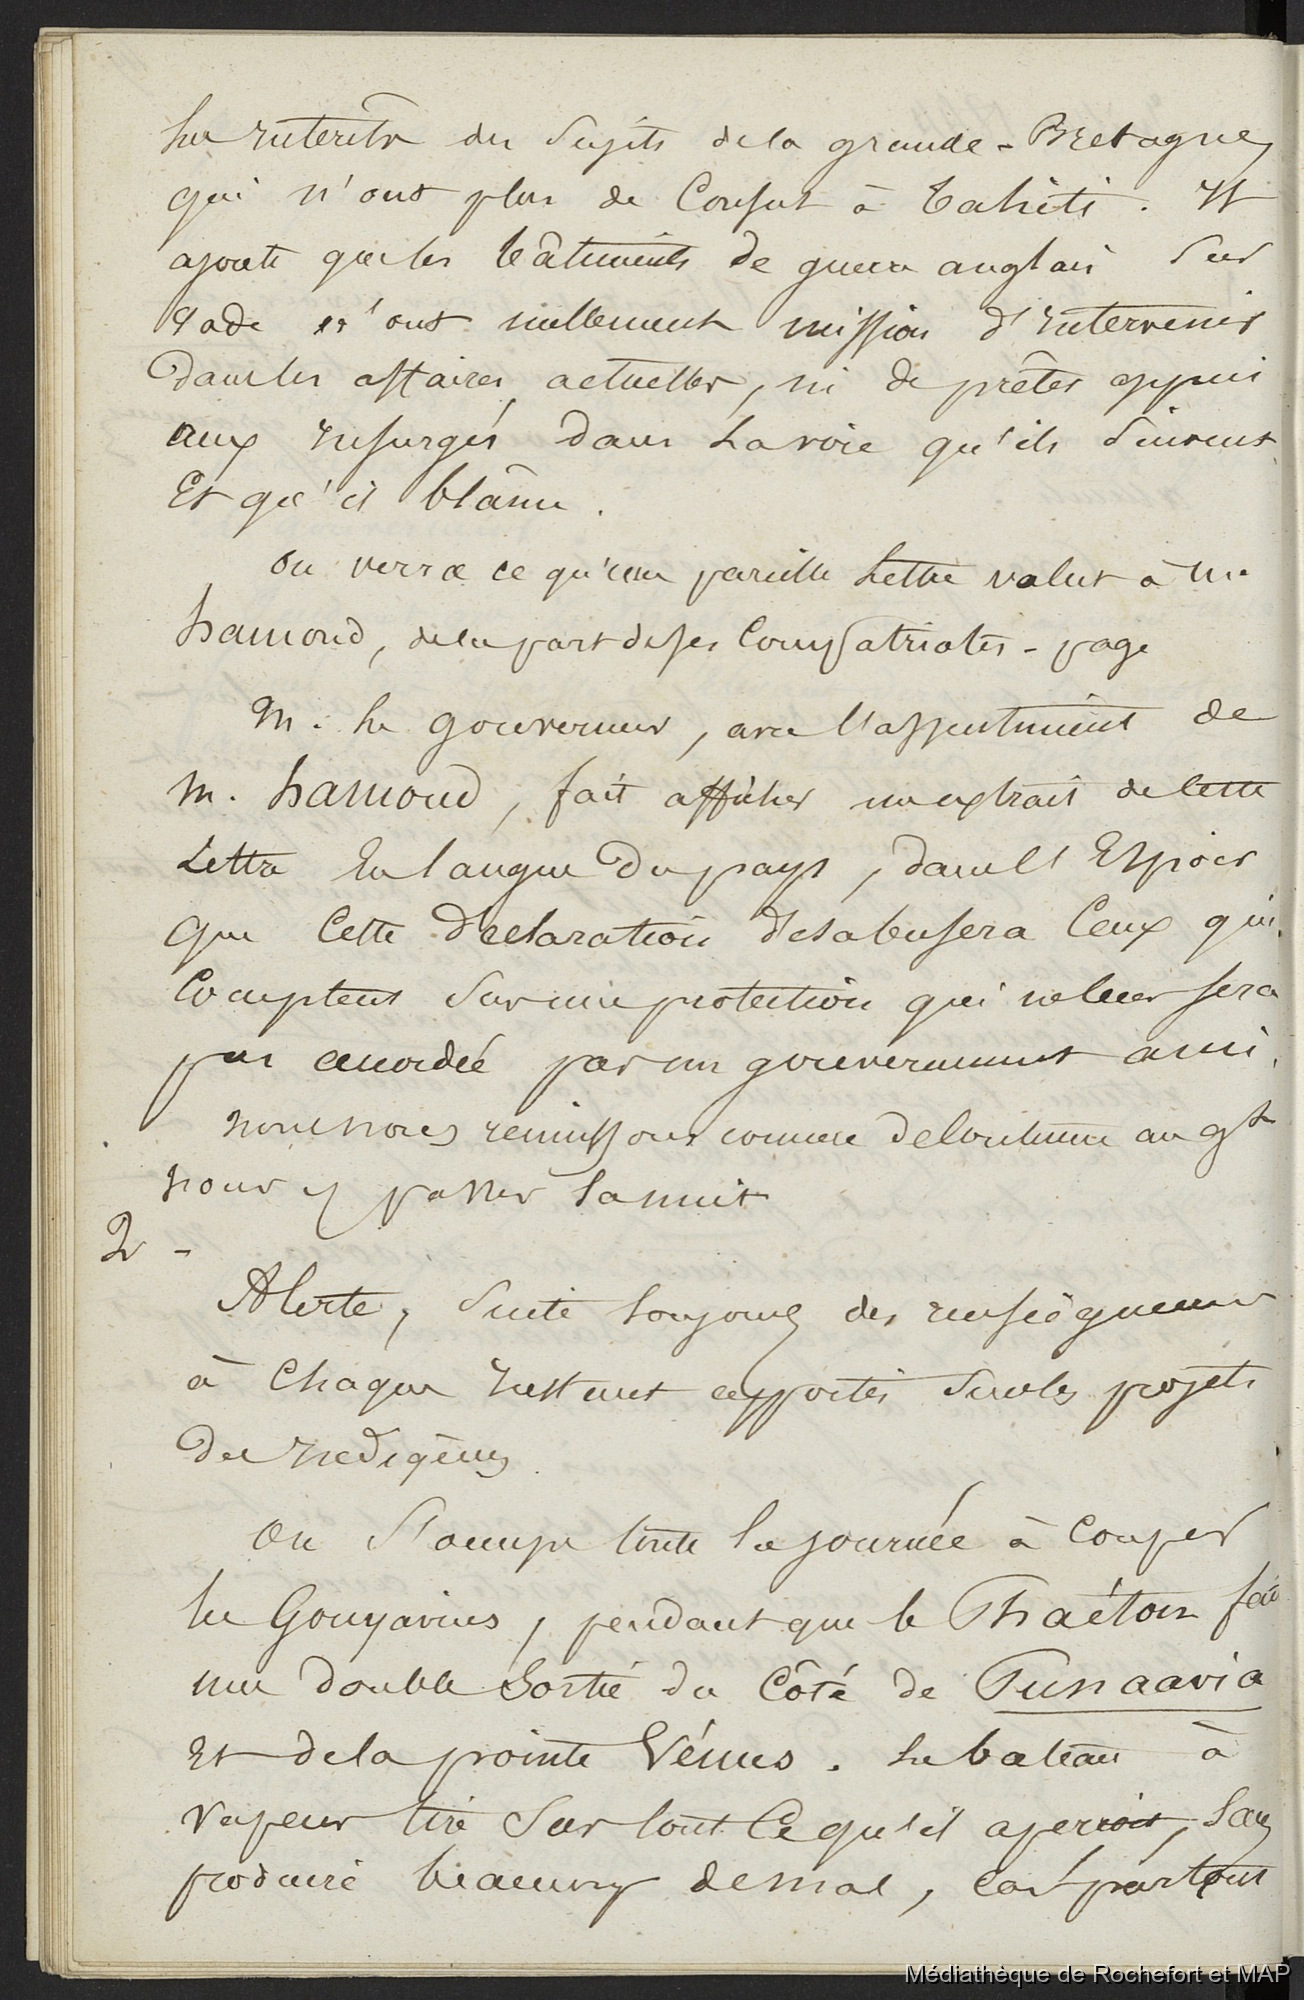 les interêts des sujets de la grande-Bretagne,
qui n'ont plus de Consul à Tahiti. Il
ajoute que les bâtiments de guerre anglais sur
rade n'ont nullement mission d'intervenir
dans les affaires actuelles, ni de prêter appui
aux insurgés dans la voie qu'ils suivent
Et qu'il blâme.
On verra ce qu'une pareille lettre valut à M.
hamond, de la part de ses Compatriotes - page
M. le gouverneur, avec l'assentiment de
M. hamond, fait afficher un extrait de cette
Lettre En langue du pays, dans l'Espoir
que Cette déclaration désabusera Ceux qui
Comptent sur une protection qui ne leur sera
pas accordée par un gouvernement ami.
nous nous réunissons comme de Coutume au gt
pour y passer la nuit
2 -
Alerte, suite toujours des renseignements
à Chaque instant apportés sur les projets
des indigènes.
On s'occupe toute la journée à Couper
les Gouyaviers, pendant que le Phaéton fait
une double Sortie du Côté de Punaavia
Et de la pointe Vénus. Le bateau à
vapeur tire sur tout Ce qu'il aperçoit, sans
produire beaucoup de mal, car partout
Médiathèque de Rochefort et MAP